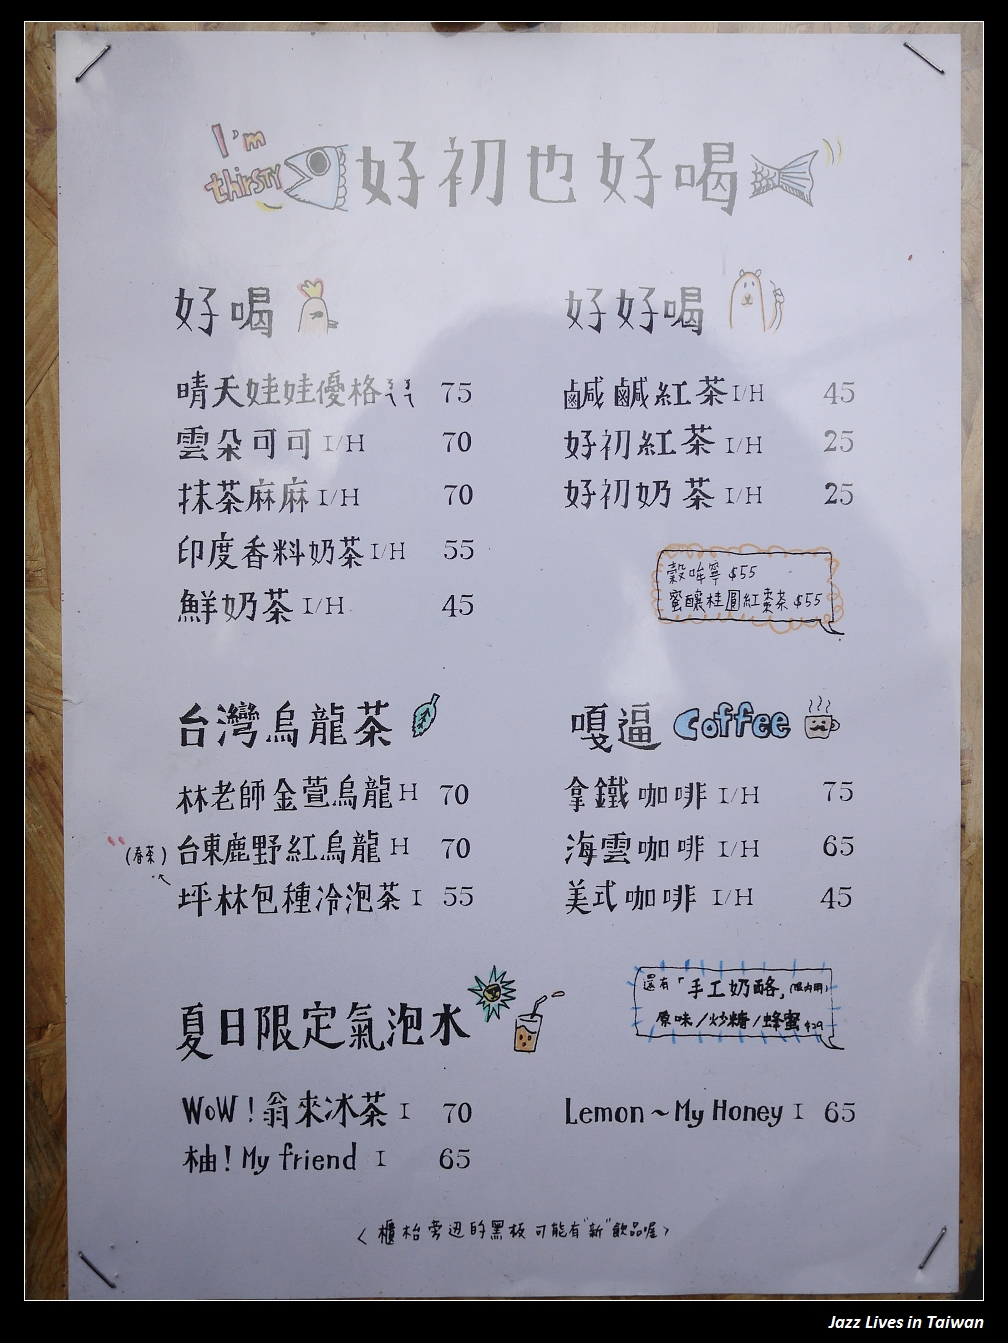 I'm thirsty
好初也好喝
好喝
晴天娃娃優格ㄋㄋ 75
雲朵可可 I/H 70
抹茶麻麻 I/H 70
印度香料奶茶 I/H 55
鮮奶茶 I/H 45
好好喝
鹹鹹紅茶 I/H 45
好初紅茶 I/H 25
好初奶茶 I/H 25
穀哞寧 $55
蜜釀桂圓紅棗茶 $55
台灣烏龍茶
林老師金萱烏龍 H 70
台東鹿野紅烏龍 H 70
(春茶)
坪林包種冷泡茶 I 55
嘎逼 Coffee
拿鐵咖啡 I/H 75
海雲咖啡 I/H 65
美式咖啡 I/H 45
還有「手工奶酪」(限內用)
原味/炒糖/蜂蜜 $29
夏日限定氣泡水
WoW!翁來冰茶 I 70
柚!My friend I 65
Lemon~My Honey I 65
<櫃枱旁边的黑板可能有"新"飲品喔>
Jazz Lives in Taiwan